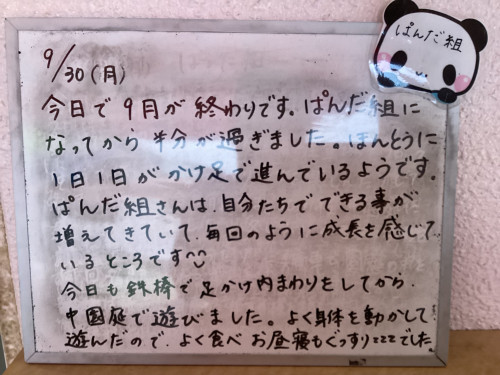 ぱんだ組
9/30(月)
今日で9月が終わりです。ぱんだ組に
なってから半分が過ぎました。ほんとうに
1日1日がかけ足で進んでいるようです。
ぱんだ組さんは、自分たちでできる事が
増えてきていて、毎回のように成長を感じて
いるところです
今日も鉄棒で足かけ内まわりをしてから、
中国庭で遊びました。よく身体を動かして
遊んだので、よく食べお昼寝もぐっすりzzzでした